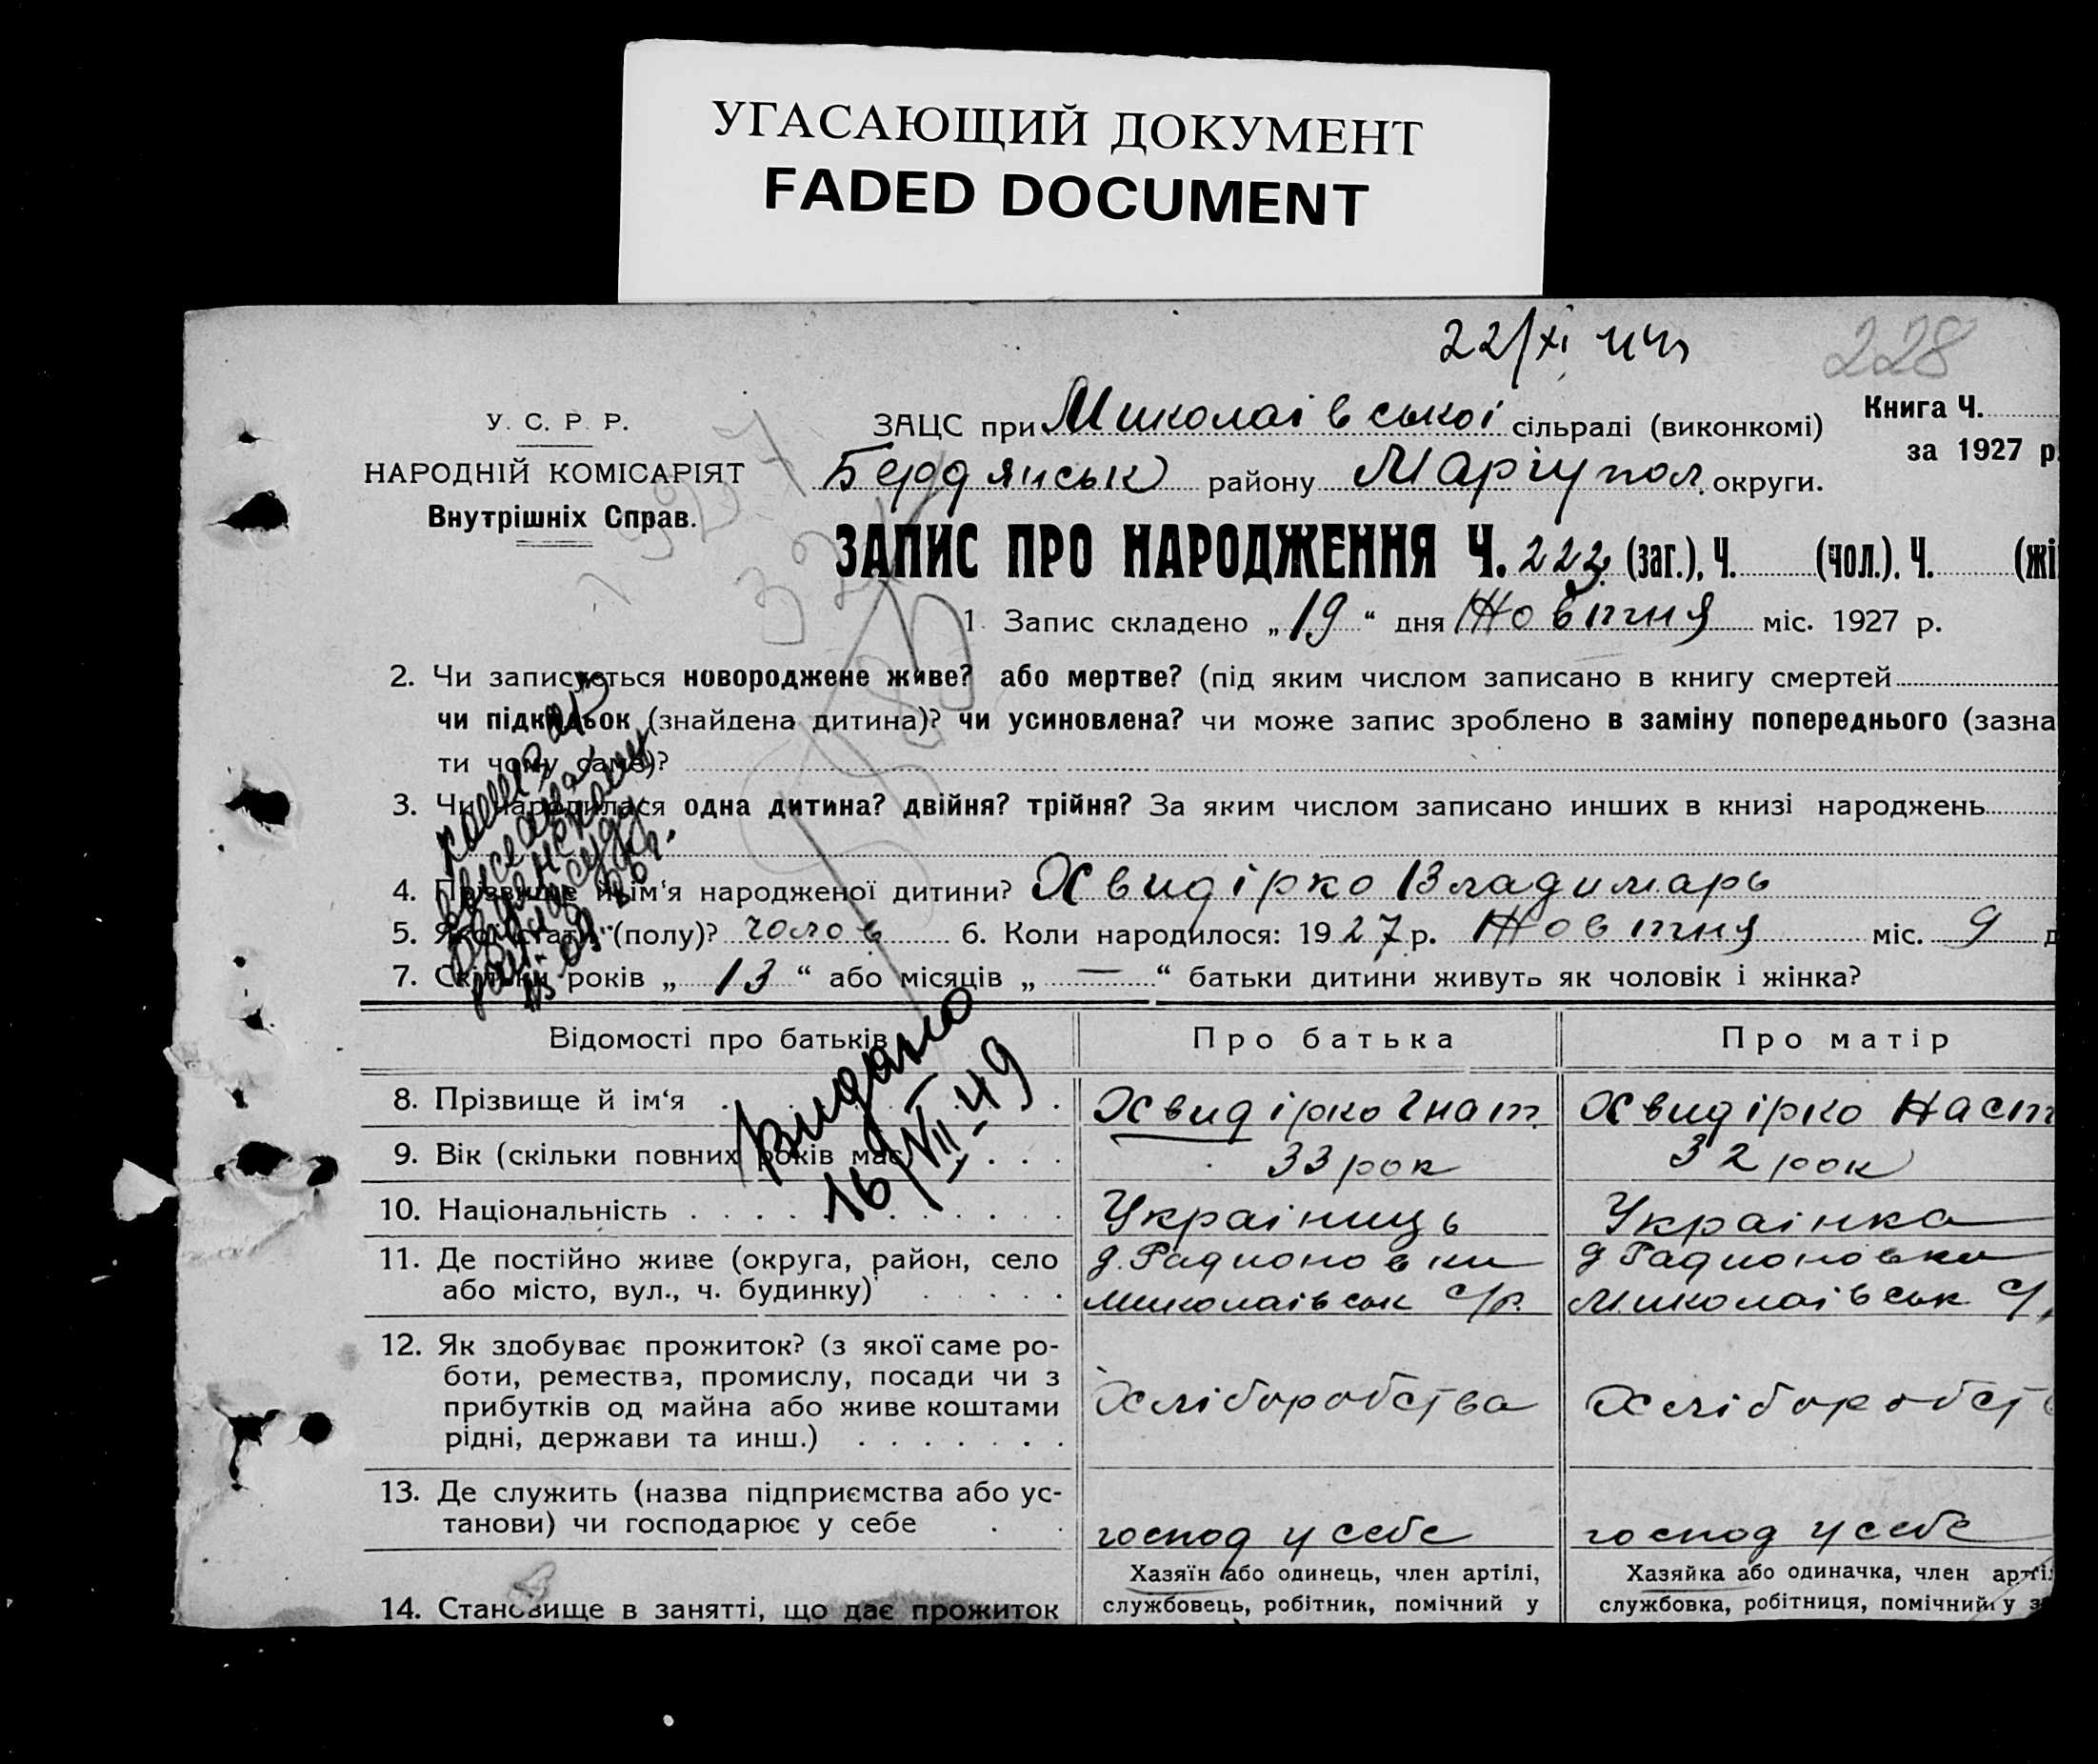 УГАСАЮЩИЙ ДОКУМЕНТ
FADED DOCUMENT
22/XI
228
У. С. Р. Р.
НАРОДНІЙ КОМІСАРІЯТ
Внутрішніх Справ.
ЗАЦС при Миколаівської сільраді (виконкомі)
Книга Ч.
за 1927 р
Бердянськ району Маріупол. округи.
ЗАПИС ПРО НАРОДЖЕННЯ Ч. 223 (заг.), Ч. (чол.). Ч. (жі
1. Запис складено „19“ дня Жовтня міс. 1927 р.
2. Чи записується новороджене живе? або мертве? (під яким числом записано в книгу смертей
чи підкидьок (знайдена дитина)? чи усиновлена? чи може запис зроблено в заміну попереднього (зазна
ти чому саме)?
3. Чи народилася одна дитина? двійня? трійня? За яким числом записано инших в книзі народжень
4. Прізвище й ім'я народженої дитини? Хвидірко Владимарь
5. Якої статі (полу)? чолов 6. Коли народилося: 1927 р. Жовтня міс. 9 д
7. Скільки років „13“ або місяців „—“ батьки дитини живуть як чоловік і жінка?
Видано
16/VII-49
Відомості про батьків
Про батька
Про матір
8. Прізвище й ім'я
Хвидірко Гнат.
Хвидірко Наст
9. Вік (скільки повних років має)
33 рок
32 рок
10. Національність
Украіниць
Украінка
11. Де постійно живе (округа, район, село
або місто, вул., ч. будинку)
д. Радионовки
Миколаівськ С/р.
д Радионовка
Миколаівськ С/
12. Як здобуває прожиток? (з якої саме ро-
боти, ремества, промислу, посади чи з
прибутків од майна або живе коштами
рідні, держави та инш.)
Хліборобства
Хліборобст
13. Де служить (назва підприємства або ус-
танови) чи господарює у себе
господ у себе
господ у себе
14. Становище в занятті, що дає прожиток
Хазяїн або одинець, член артілі,
службовець, робітник, помічний у
Хазяйка або одиначка, член артіл
службовка, робітниця, помічний у з